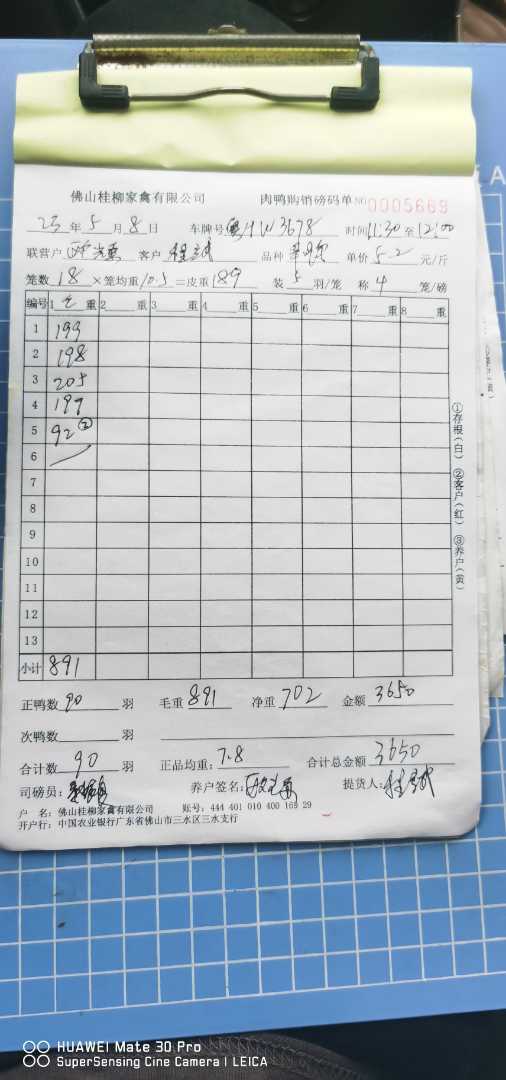 A
佛山桂柳家禽有限公司 肉鸭购销磅码单 NO 0005669
25年5月8日 车牌号 W3678 时间11:30至12:00
联营户 客户 品种 单价5.2元/斤
笼数18×笼均重10.5=皮重189 装5羽/笼 称4笼/磅
编号 1 毛重 2 重 3 重 4 重 5 重 6 重 7 重 8 重
1 199
2 198
3 205
4 197
5 92 ②
6
7
8
9
10
11
12
13
小计 891
①存根(白) ②客户(红) ③养户(黄)
正鸭数90羽 毛重891 净重702 金额3650
次鸭数 羽
合计数90羽 正品均重:7.8 合计总金额3650
司磅员: 养户签名: 提货人:
户 名:佛山桂柳家禽有限公司 账号:444 401 010 400 169 29
开户行:中国农业银行广东省佛山市三水区三水支行
HUAWEI Mate 30 Pro
SuperSensing Cine Camera | LEICA